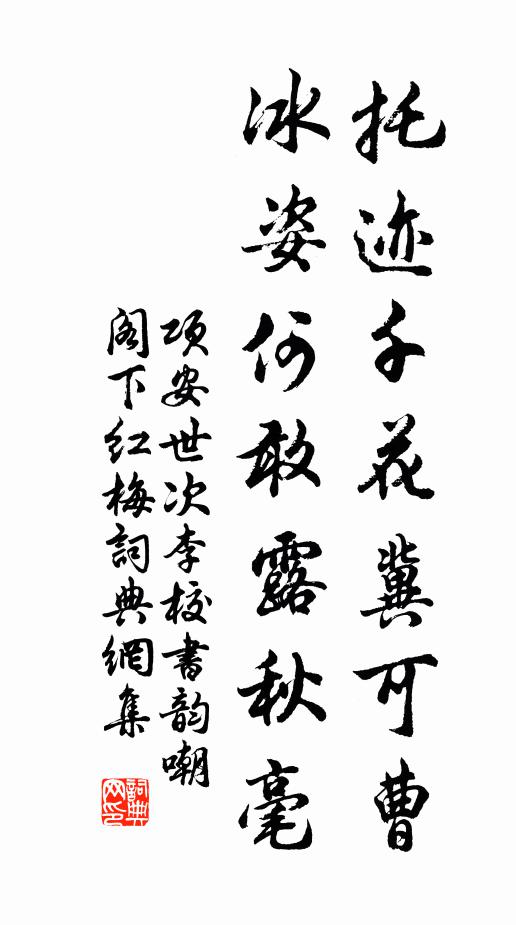 托迹千花冀可曹
冰姿何敢露秋毫
项安世次李校書韵嘲
阁下红梅詞典網集
詞典网印